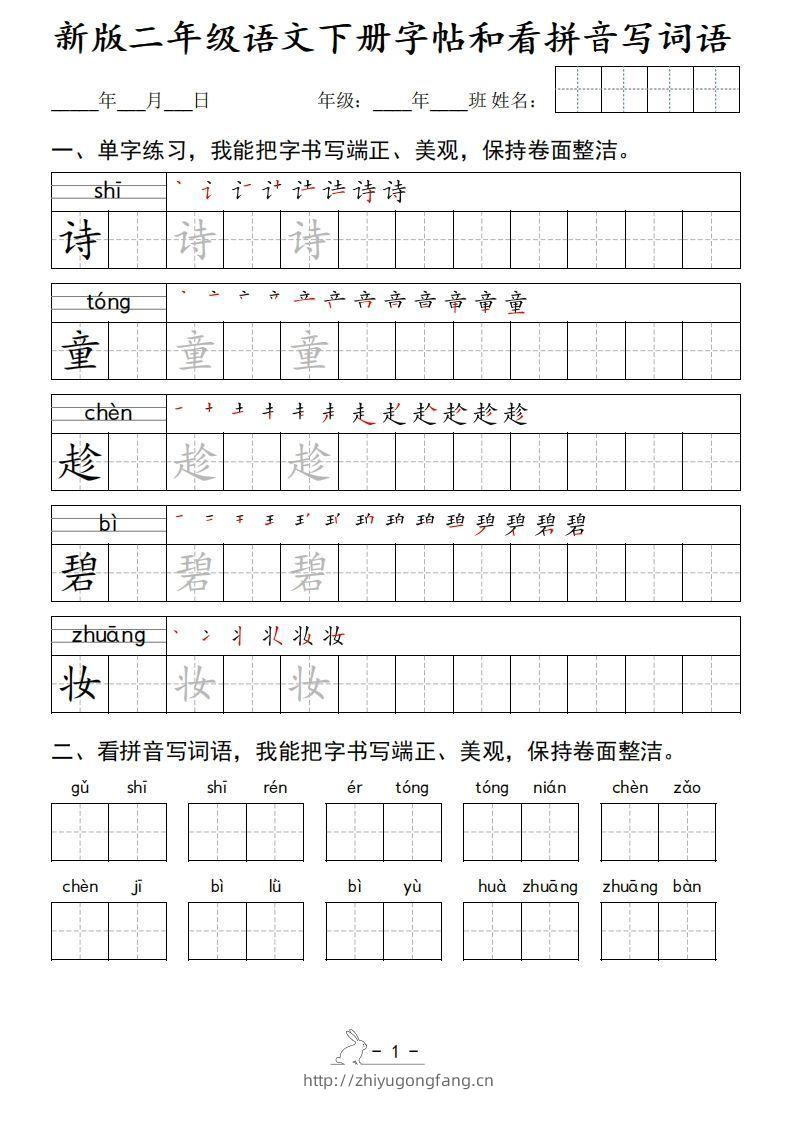 新版二年级语文下册字帖和看拼音写词语
_____年___月___日 年级：____年____班 姓名：
一、单字练习，我能把字书写端正、美观，保持卷面整洁。
shī
诗 诗 诗
tóng
童 童 童
chèn
趁 趁 趁
bì
碧 碧 碧
zhuāng
妆 妆 妆
二、看拼音写词语，我能把字书写端正、美观，保持卷面整洁。
gǔ shī shī rén ér tóng tóng nián chèn zǎo
chèn jī bì lǜ bì yù huà zhuāng zhuāng bàn
- 1 -
http://zhiyugongfang.cn